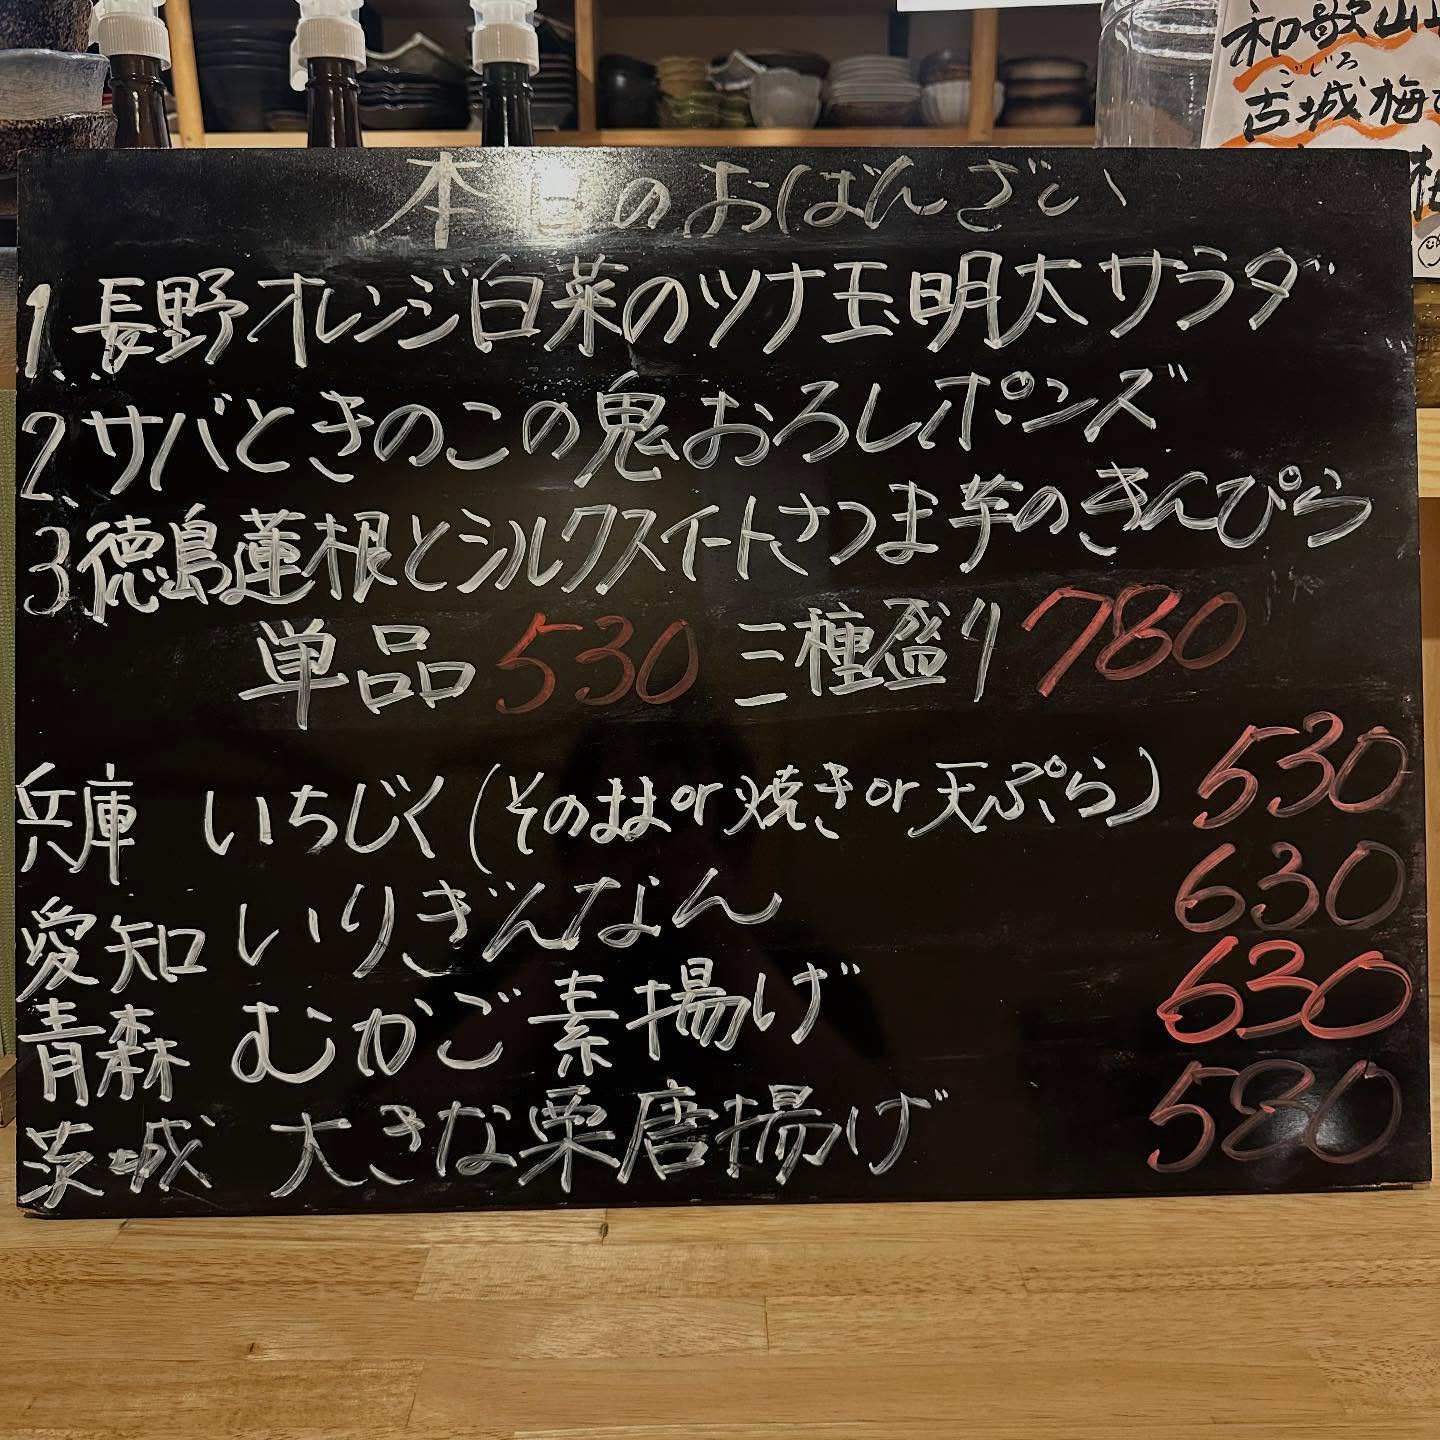 和歌山
ごじろ
古城梅
本日のおばんざい
1、長野オレンジ白菜のツナ玉明太サラダ
2、サバときのこの鬼おろしポンズ
3、徳島蓮根とシルクスイートさつま芋のきんぴら
単品 530 三種盛り 780
兵庫 いちじく(そのままor焼きor天ぷら) 530
愛知 いりぎんなん 630
青森 むかご素揚げ 630
茨城 大きな栗唐揚げ 580